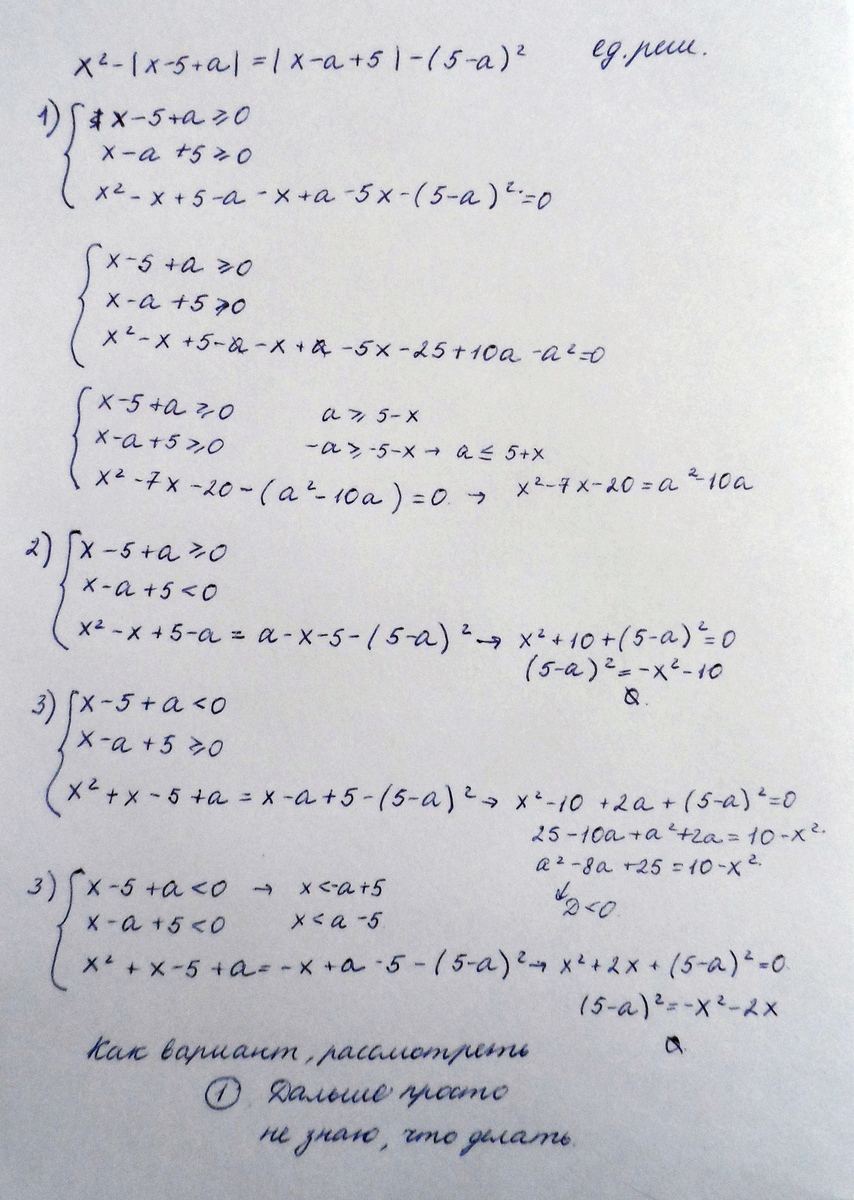 x² - |x-5+a| = |x-a+5| - (5-a)² ед. реш.
1) { x-5+a ≥ 0
x-a+5 ≥ 0
x² - x + 5 - a - x + a - 5x - (5-a)² = 0
{ x-5+a ≥ 0
x-a+5 ≥ 0
x² - x + 5 - a - x + a - 5x - 25 + 10a - a² = 0
{ x-5+a ≥ 0 a ≥ 5-x
x-a+5 ≥ 0 -a ≥ -5-x → a ≤ 5+x
x² - 7x - 20 - (a² - 10a) = 0 → x² - 7x - 20 = a² - 10a
2) { x-5+a ≥ 0
x-a+5 < 0
x² - x + 5 - a = a - x - 5 - (5-a)² → x² + 10 + (5-a)² = 0
(5-a)² = -x² - 10
3) { x-5+a < 0
x-a+5 ≥ 0
x² + x - 5 + a = x - a + 5 - (5-a)² → x² - 10 + 2a + (5-a)² = 0
25 - 10a + a² + 2a = 10 - x²
a² - 8a + 25 = 10 - x²
↓
D < 0
3) { x-5+a < 0 → x < -a+5
x-a+5 < 0 x < a-5
x² + x - 5 + a = -x + a - 5 - (5-a)² → x² + 2x + (5-a)² = 0
(5-a)² = -x² - 2x
Как вариант, рассмотреть
① Дальше просто
не знаю, что делать.